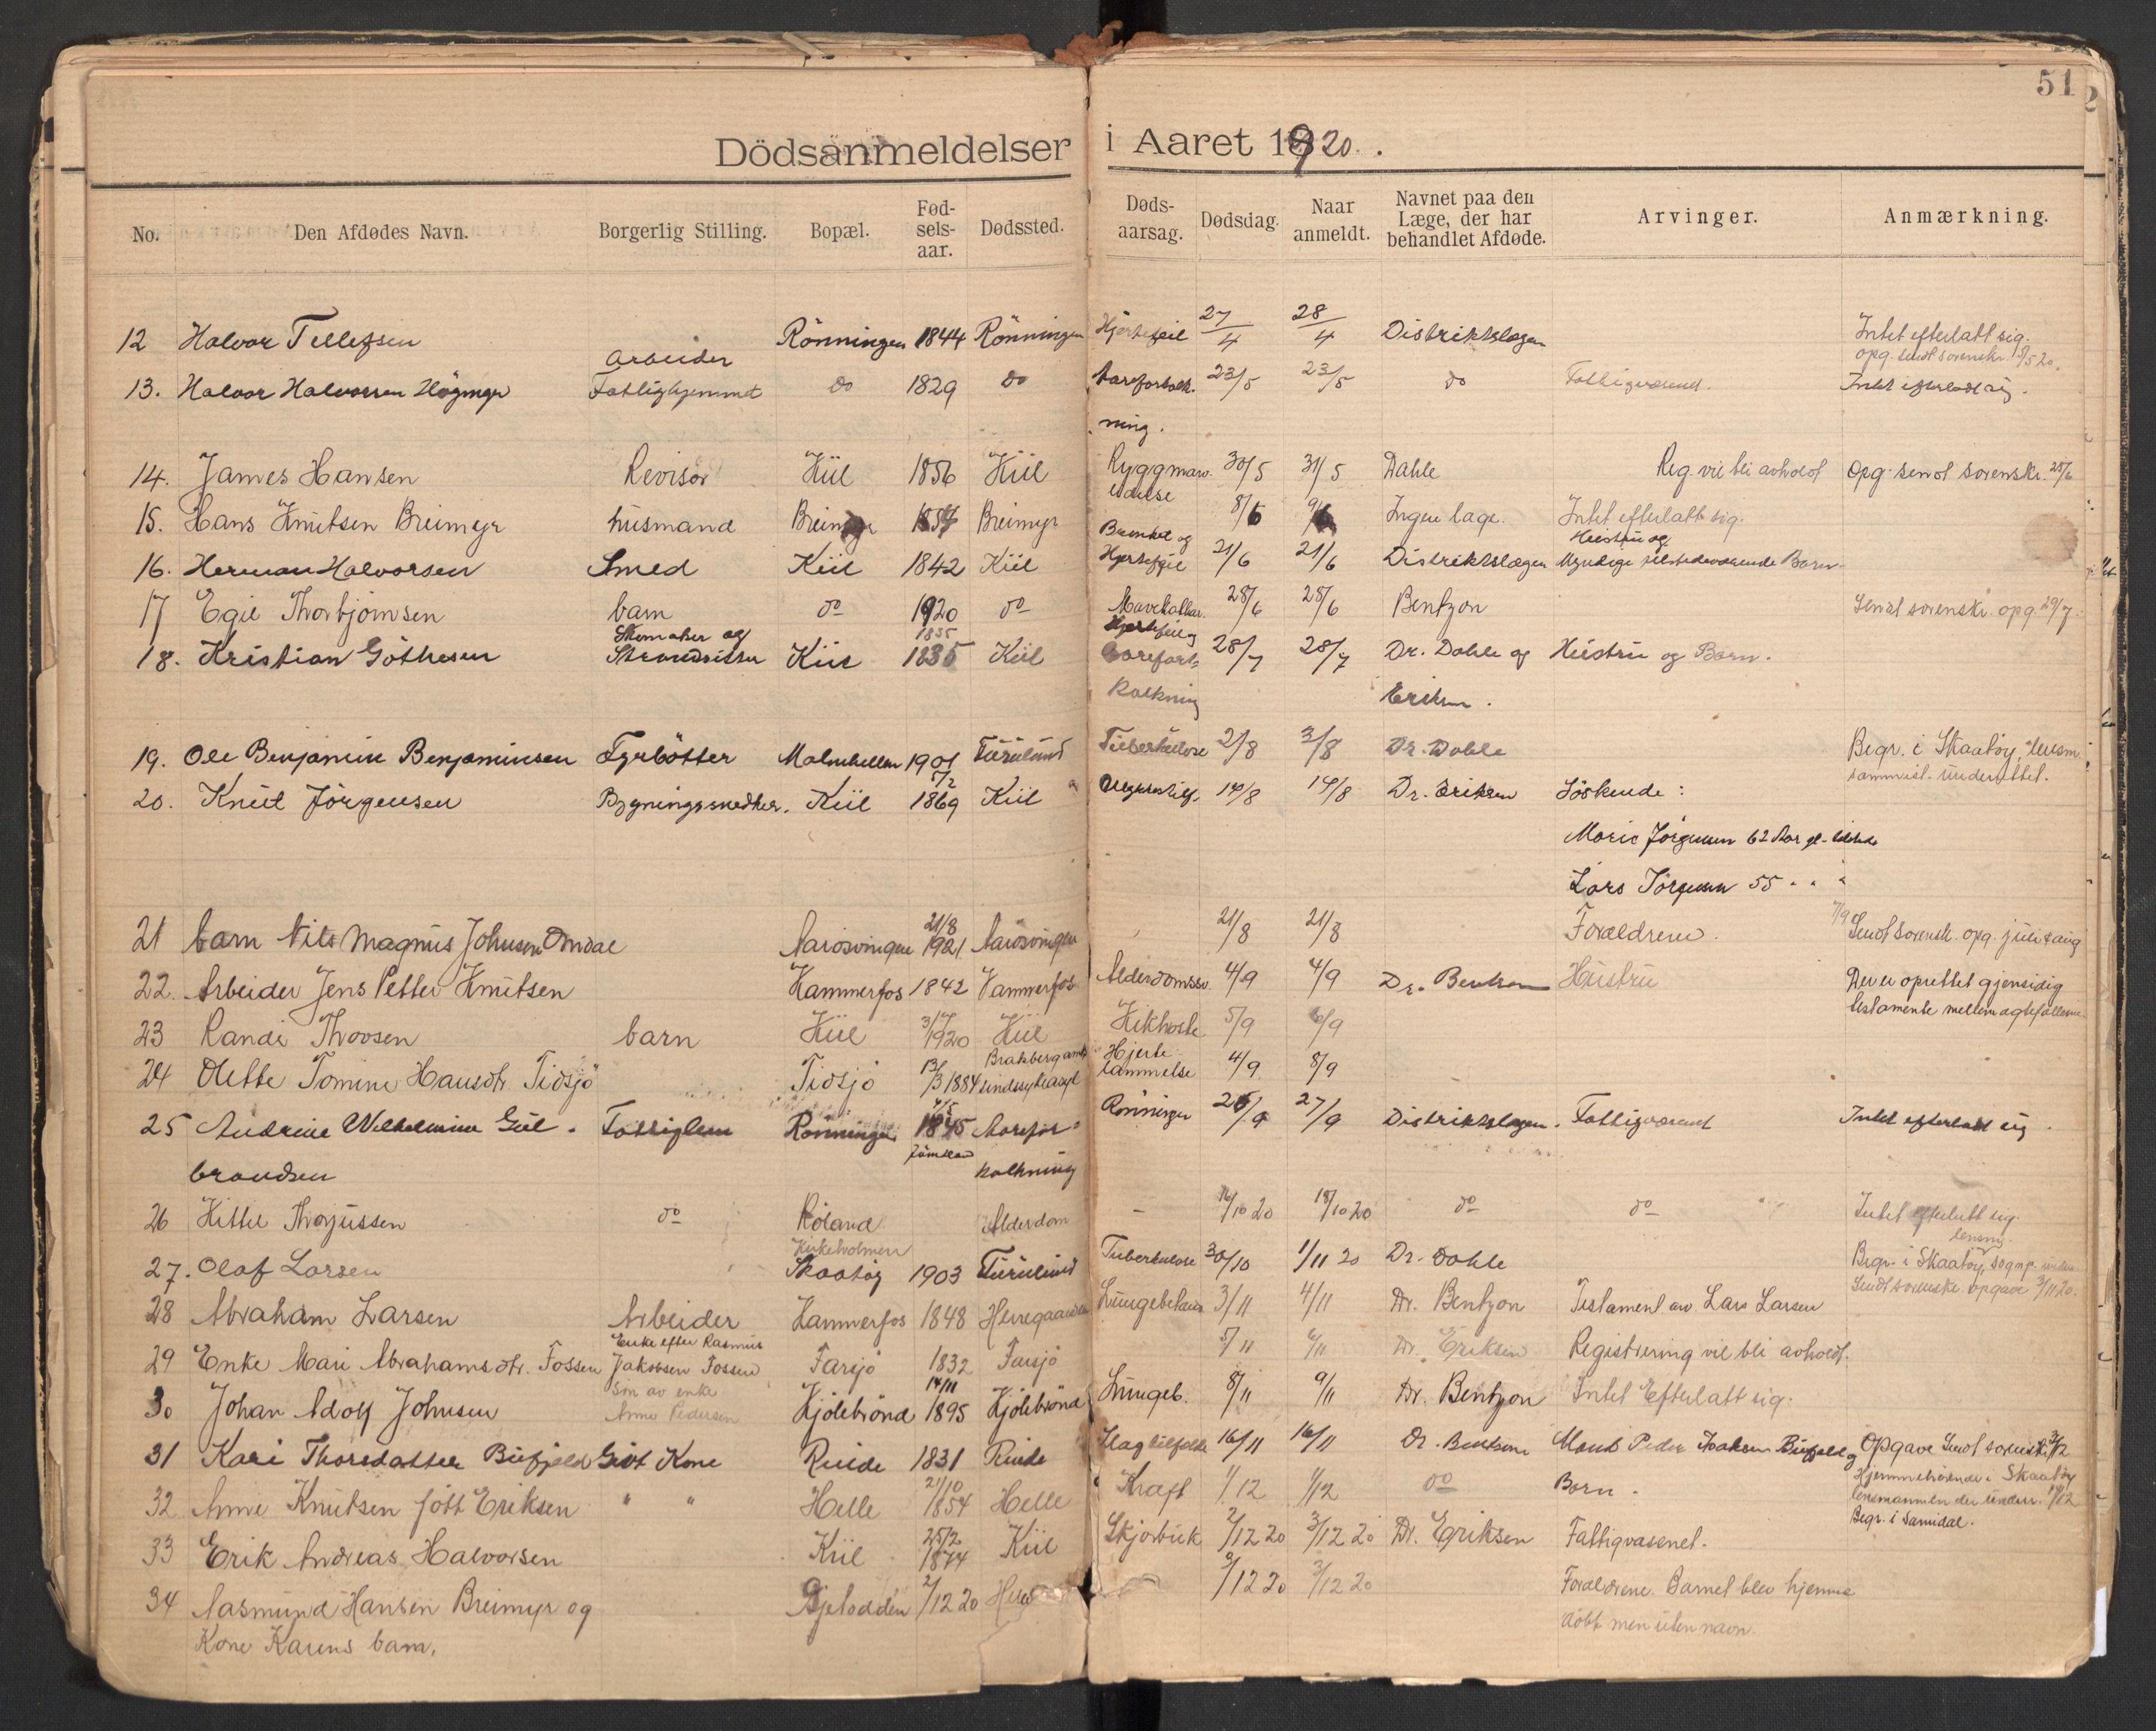 51
Dödsanmeldelser i Aaret 1920.
No. Den Afdødes Navn. Borgerlig Stilling. Bopæl. Fød-sels-aar. Dødssted. Døds-aarsag. Dødsdag. Naar anmeldt. Navnet paa den Læge, der har behandlet Afdøde. Arvinger. Anmærkning.
12 Halvor Tellefsen Arbeider Rönningen 1844 Rönningen Hjertefeil 27/4 28/4 Distriktslægen Intet efterlatt sig.
opg. sendt sorenskr.
13. Halvor Halvorsen Fattighjemmet do 1829 do Aareforkalk- 23/5 23/5 do Fattigvæsenet. Intet efterladt sig.
ning.
14. James Hansen Revisor Kiil 1856 Kiil Ryggmarv- 30/5 31/5 Dahle Reg. vil bli avholdt Opg. sendt sorenskr. 28/6
lidelse
15. Hans Knutsen Breimyr husmand Breimyr 1857 Breimyr 8/6 9/6 Ingen læge. Intet efterlatt sig.
Hustru og
16. Herman Halvorsen Smed Kiil 1842 Kiil Hjertefeil 21/6 21/6 Distriktslægen Myndige tilstedeværende Børn.
17 Egil Thorbjörnsen barn do 1920 do Mavekatharr 28/6 28/6 Bentzon Sendt sorenskr. opg. 29/7.
Skomaker og 1835 Hjertefeil og
18. Kristian Göthesen Strandsitter Kiil 1835 Kiil Aarefor- 28/7 28/7 Dr. Dahle og Hustru og Børn.
kalkning Eriksen.
19. Ole Benjamin Benjaminsen Fyrbötter Malmhellen 1901 Furulund Tuberkulose 2/8 3/8 Dr. Dahle Begr. i Skaatøy, lensm.
underrettet.
20. Knut Jörgensen Bygningssnedker. Kiil 5/2 1869 Kiil 14/8 14/8 Dr. Eriksen Söskende:
Marie Jörgensen 62 Aar gl.
Lars Jörgensen 55 " " "
21 barn Nils Magnus Johnsen Omdal Aaröovingen 21/8 1921 Aaröovingen 21/8 21/8 Forældrene. 7/9 Sendt sorensk. opg. juli & aug
22. Arbeider Jens Petter Knutsen Kammerfos 1842 Kammerfos Alderdomssv. 4/9 4/9 Dr. Bentzon Hustru Der er oprettet gjensidig
testamente mellem ægtefællerne.
23 Randi Thovsen barn Kiil 3/7 1920 Kiil Kikhoste 5/9 6/9
24 Olette Tomine Hansdtr. Tidsjö Tidsjö 13/3 1884 sindssykeasyl Hjerte- 4/9 8/9
lammelse
25 Andrine Wilhelmine Gul- Fattiglem Rönningen 1845 Aarefor- Rönningen 26/9 27/9 Distriktslægen. Fattigvæsenet Intet efterladt sig.
brandsen kalkning
26 Kittel Thorjussen do Röland Alderdom - 16/10 20 18/10 20 do do Intet efterlatt sig.
Kirkeholmen
27. Olaf Larsen Skaatøy 1903 Furulund Tuberkulose 30/10 1/11 20 Dr. Dahle Begr. i Skaatøy
Sendt sorenskr. opgave 3/11 20.
28 Abraham Larsen Arbeider Kammerfos 1848 Herregaarden 3/11 4/11 Dr. Bentzon Testament av Lars Larsen
Enke efter Rasmus
29 Enke Mari Abrahamsdtr. Fossen Jakobsen Fossen Farsjö 1832 Farsjö 5/11 6/11 Dr. Eriksen Registrering vil bli avholdt.
Sön av enke 14/11
30 Johan Adolf Johnsen Anne Pedersen Kjölebrönd 1895 Kjölebrönd Lungeb. 8/11 9/11 Dr. Bentzon Intet Efterlatt sig.
31 Kari Thorsdatter Bufjeld Gift Kone Rinde 1831 Rinde Slagtilfælde 16/11 16/11 Dr. Bentzon Mand Peder Bufjeld og Opgave sendt sorenskr.
32 Anne Knutsen født Eriksen " " Helle 21/10 1854 Helle Kræft 1/12 1/12 do Børn. Hjemmehørende i Skaatøy
lensmannen der underr.
Begr. i Sannidal.
33 Erik Andreas Halvorsen Kiil 25/2 1874 Kiil Skjørbuk 2/12 20 3/12 20 Dr. Eriksen Fattigvæsenet.
34 Aasmund Hansen Breimyr og Gjelodden 2/12 20 2/12 20 3/12 20 Forældrene. Barnet blev hjemme
Kone Karens barn. döbt men uten navn.